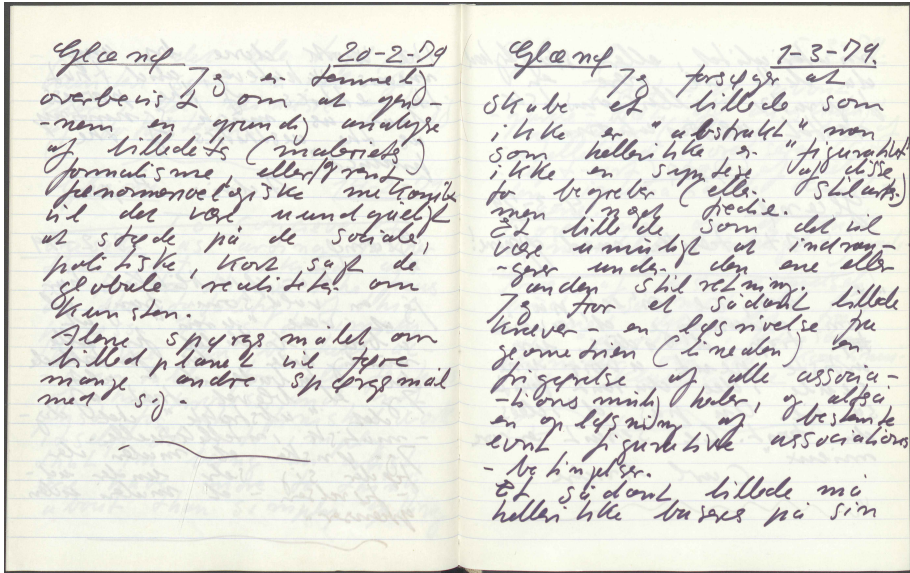 Glænø 20-2-79
Jeg er temmelig
overbevist om at gen-
-nem en grundig analyse
af billedets (maleriets)
formalisme, eller rent
fænomenologiske mekanik
vil det være uundgåeligt
at støde på de sociale,
politiske, kort sagt de
globale realiteter om
kunsten.
Alene spørgsmålet om
billedplanet vil føre
mange andre spørgsmål
med sig.
Glænø 1-3-79.
Jeg forsøger at
skabe et billede som
ikke er "abstrakt" men
som heller ikke er "figurativt"
ikke en syntese af disse
to begreber (eller stilarter)
men noget tredie.
Et billede som det vil
være umuligt at indran-
-gere under den ene eller
anden stilretning.
Jeg tror et sådant billede
kræver - en løsrivelse fra
geometrien (linealen) en
frigørelse af alle associa-
-tionsmuligheder, og altså
en opløsning af bestemte
evnt figurative associations
-betingelser.
Et sådant billede må
heller ikke baseres på sin